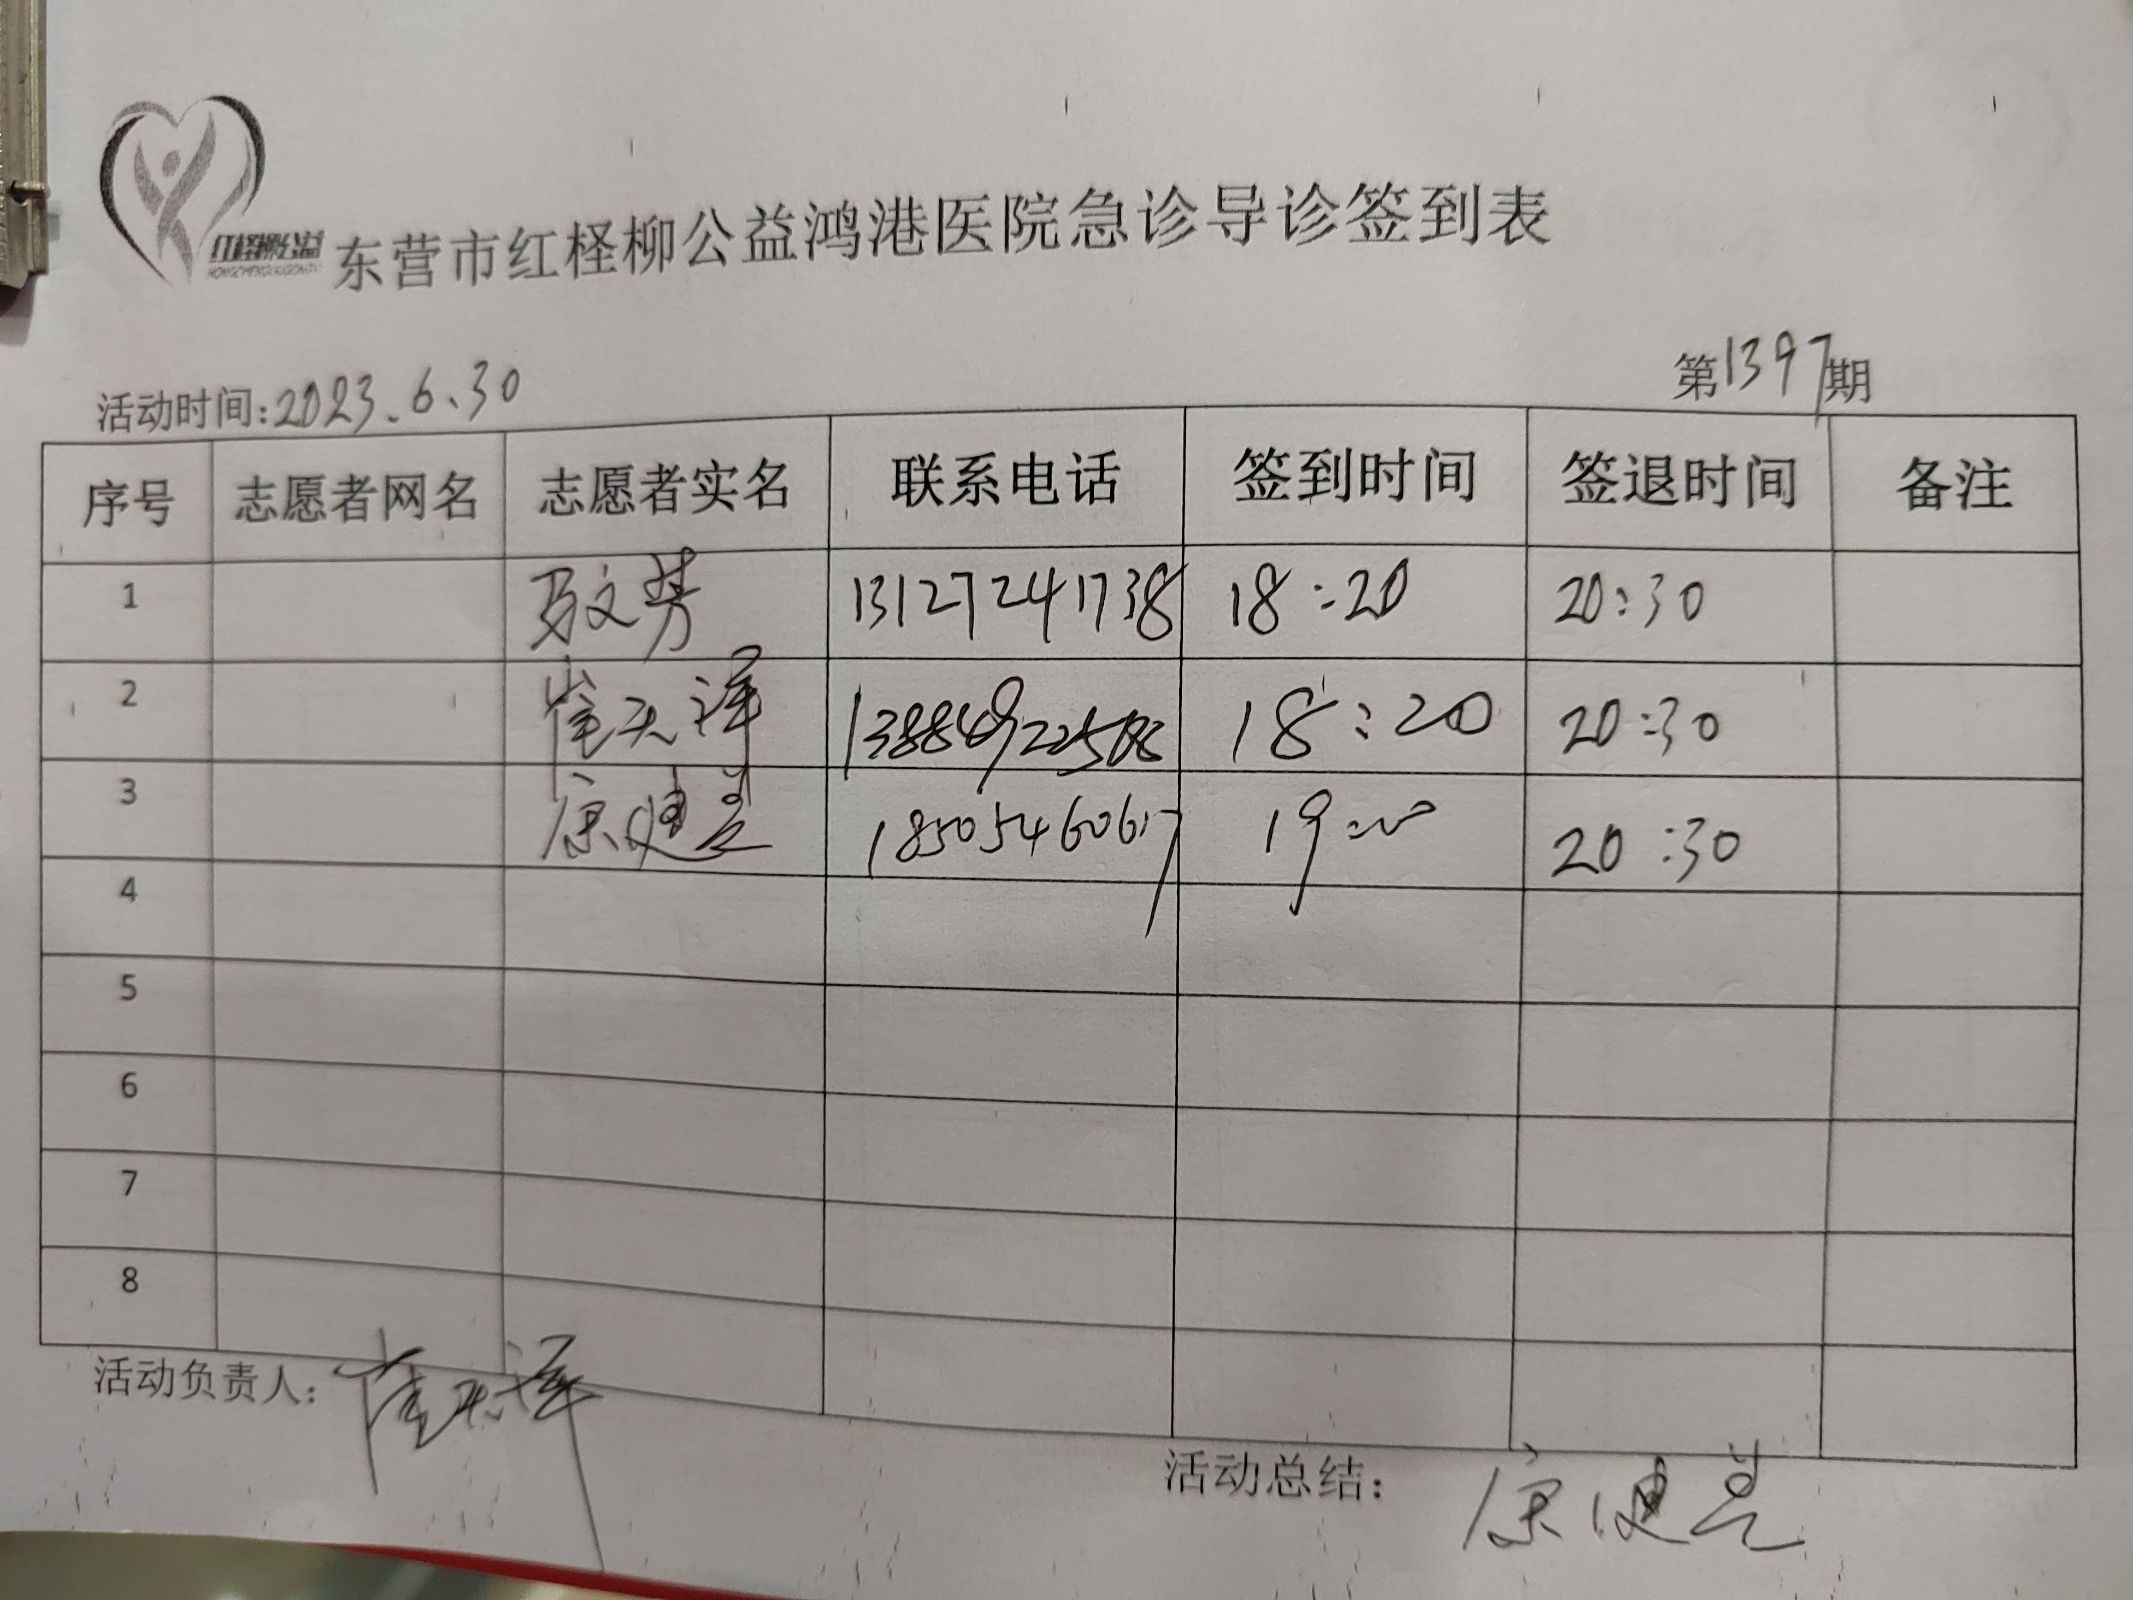 红柽柳公益
东营市红柽柳公益鸿港医院急诊导诊签到表
活动时间:2023.6.30 第1397期
序号 志愿者网名 志愿者实名 联系电话 签到时间 签退时间 备注
1 13127241738 18:20 20:30
2 崔天泽 18:20 20:30
3 18505460617 19:00 20:30
4
5
6
7
8
活动负责人: 崔天泽
活动总结: